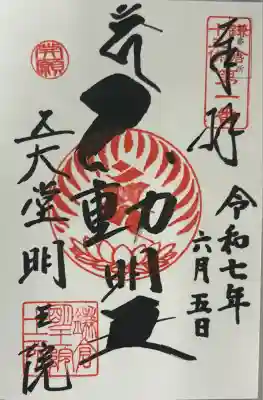 奉拝
令和七年
六月五日
不動明王
五大堂明王院